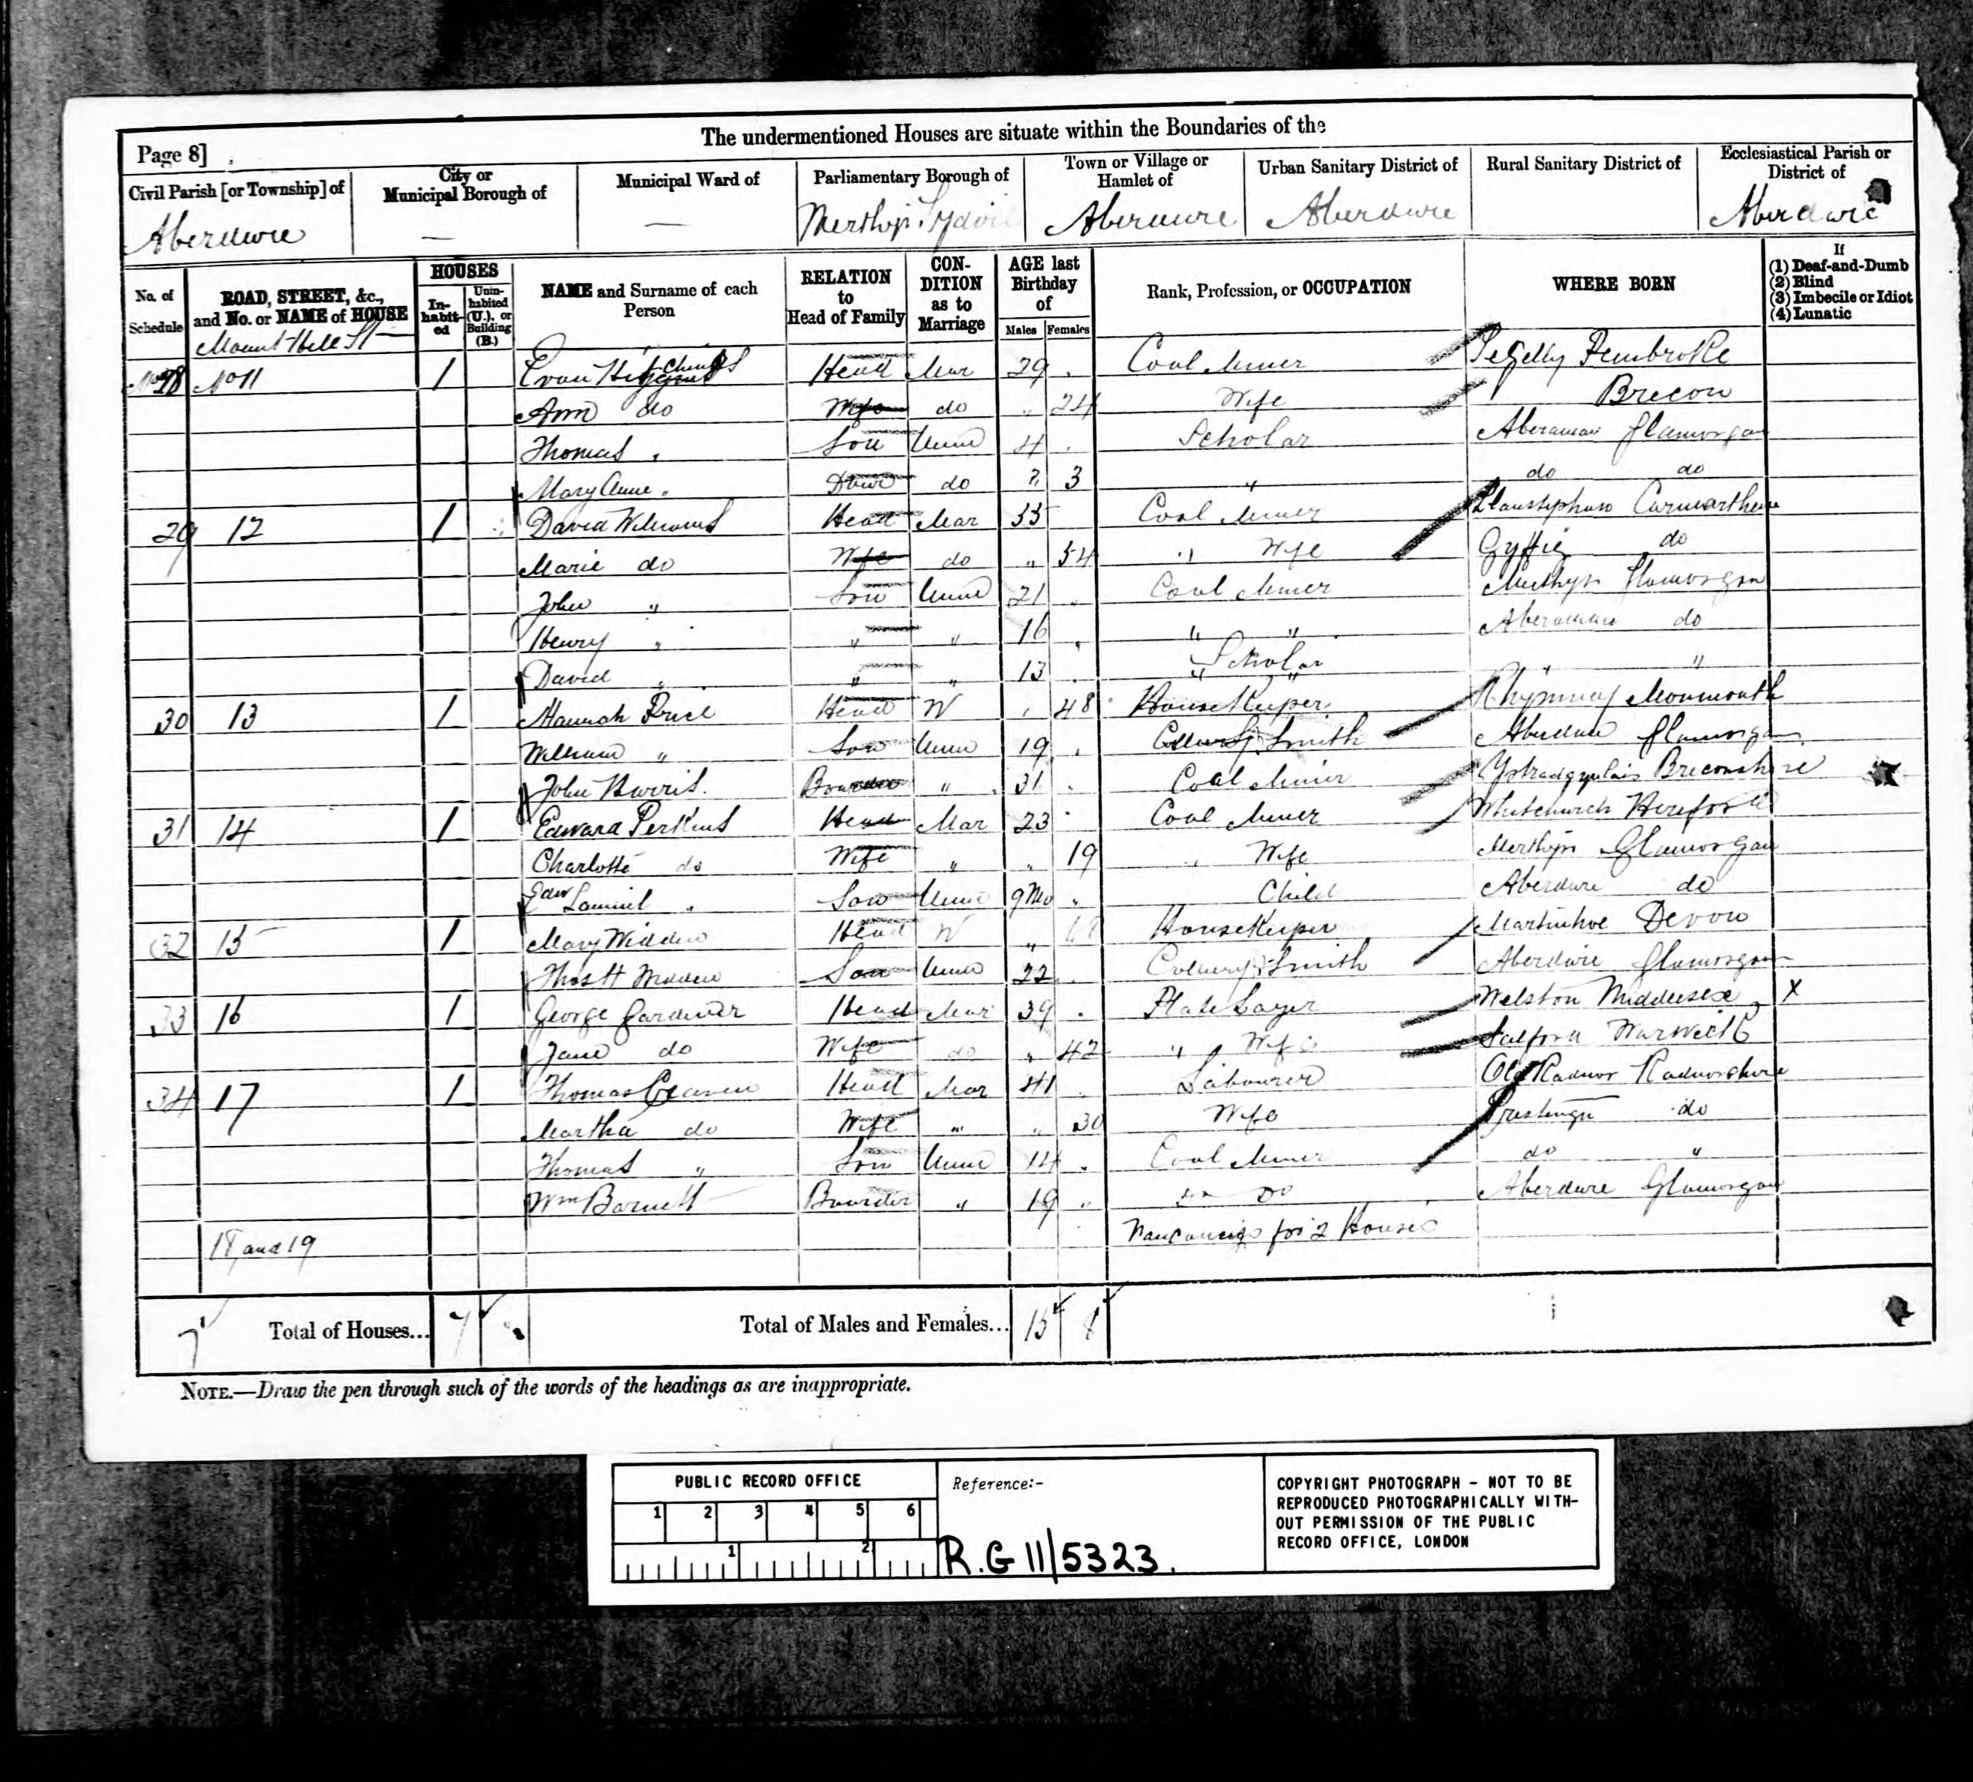 The undermentioned Houses are situate within the Boundaries of the
Page 8]
Civil Parish [or Township] of
City or Municipal Borough of
Municipal Ward of
Parliamentary Borough of
Town or Village or Hamlet of
Urban Sanitary District of
Rural Sanitary District of
Ecclesiastical Parish or District of
Aberdare — — Merthyr Tydvil Aberdare Aberdare Aberdare
No. of Schedule
ROAD, STREET, &c., and No. or NAME of HOUSE
HOUSES
In-habit-ed
Unin-habited (U.), or Building (B.)
NAME and Surname of each Person
RELATION to Head of Family
CON-DITION as to Marriage
AGE last Birthday of
Males Females
Rank, Profession, or OCCUPATION
WHERE BORN
If
(1) Deaf-and-Dumb
(2) Blind
(3) Imbecile or Idiot
(4) Lunatic
Mount Hill St
28 No 11 1 Evan Head Mar 29 Coal Miner Pembroke
Ann do Wife do 24 Wife Brecon
Thomas Son Unm 4 Scholar Aberaman Glamorgan
Mary Anne Daur do 3 " do do
29 12 1 David Williams Head Mar 55 Coal Miner Carmarthen
Marie do Wife do 54 " Wife do
John " Son Unm 21 Coal Miner Merthyr Glamorgan
Henry " " " 16 " " Aberaman do
David " " " 13 Scholar " "
30 13 1 Hannah Price Head W 48 House Keeper Rhymney Monmouth
William " Son Unm 19 Colliery Smith Aberdare Glamorgan
John Harris Boarder " 31 Coal Miner Ystradgynlais Breconshire
31 14 1 Edward Perkins Head Mar 23 Coal Miner Whitchurch Hereford
Charlotte do Wife " 19 Wife Merthyr Glamorgan
Edwr Samuel Son Unm 9 Mo Child Aberdare do
32 15 1 Mary Head W House Keeper Martinhoe Devon
Thos H Son Unm 22 Colliery Smith Aberdare Glamorgan
33 16 1 George Gardener Head Mar 39 Plate Layer Middlesex X
Jane do Wife do 42 " Wife Salford Warwick
34 17 1 Thomas Head Mar 41 Labourer Old Radnor Radnorshire
Martha do Wife " 30 Wife do
Thomas " Son Unm 14 Coal Miner do "
Wm Barnett Boarder " 19 do Aberdare Glamorgan
18 and 19 for 2 Houses
7 Total of Houses... 7 Total of Males and Females... 15 8
NOTE.—Draw the pen through such of the words of the headings as are inappropriate.
PUBLIC RECORD OFFICE
1 2 3 4 5 6
1 2
Reference:-
R.G 11/5323.
COPYRIGHT PHOTOGRAPH - NOT TO BE
REPRODUCED PHOTOGRAPHICALLY WITH-
OUT PERMISSION OF THE PUBLIC
RECORD OFFICE, LONDON